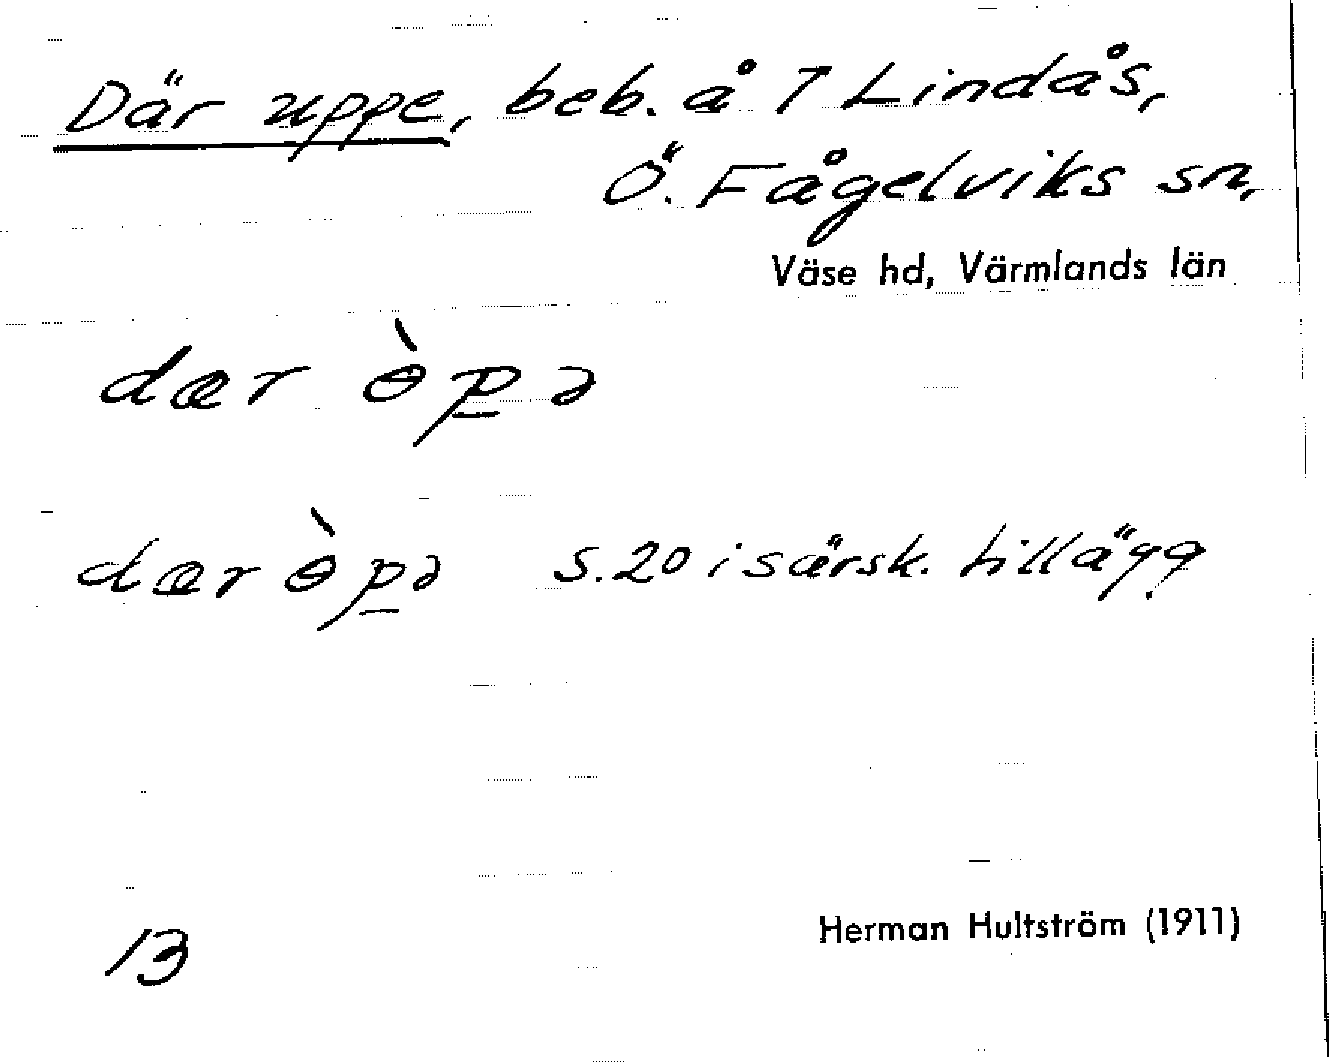 Där uppe, beb. å 7 Lindås,
Ö. Fågelviks sn,
Väse hd, Värmlands län
dær ɵ̀p̠ə
dær ɵ̀p̠ə s. 20 i särsk. tillägg
13
Herman Hultström (1911)